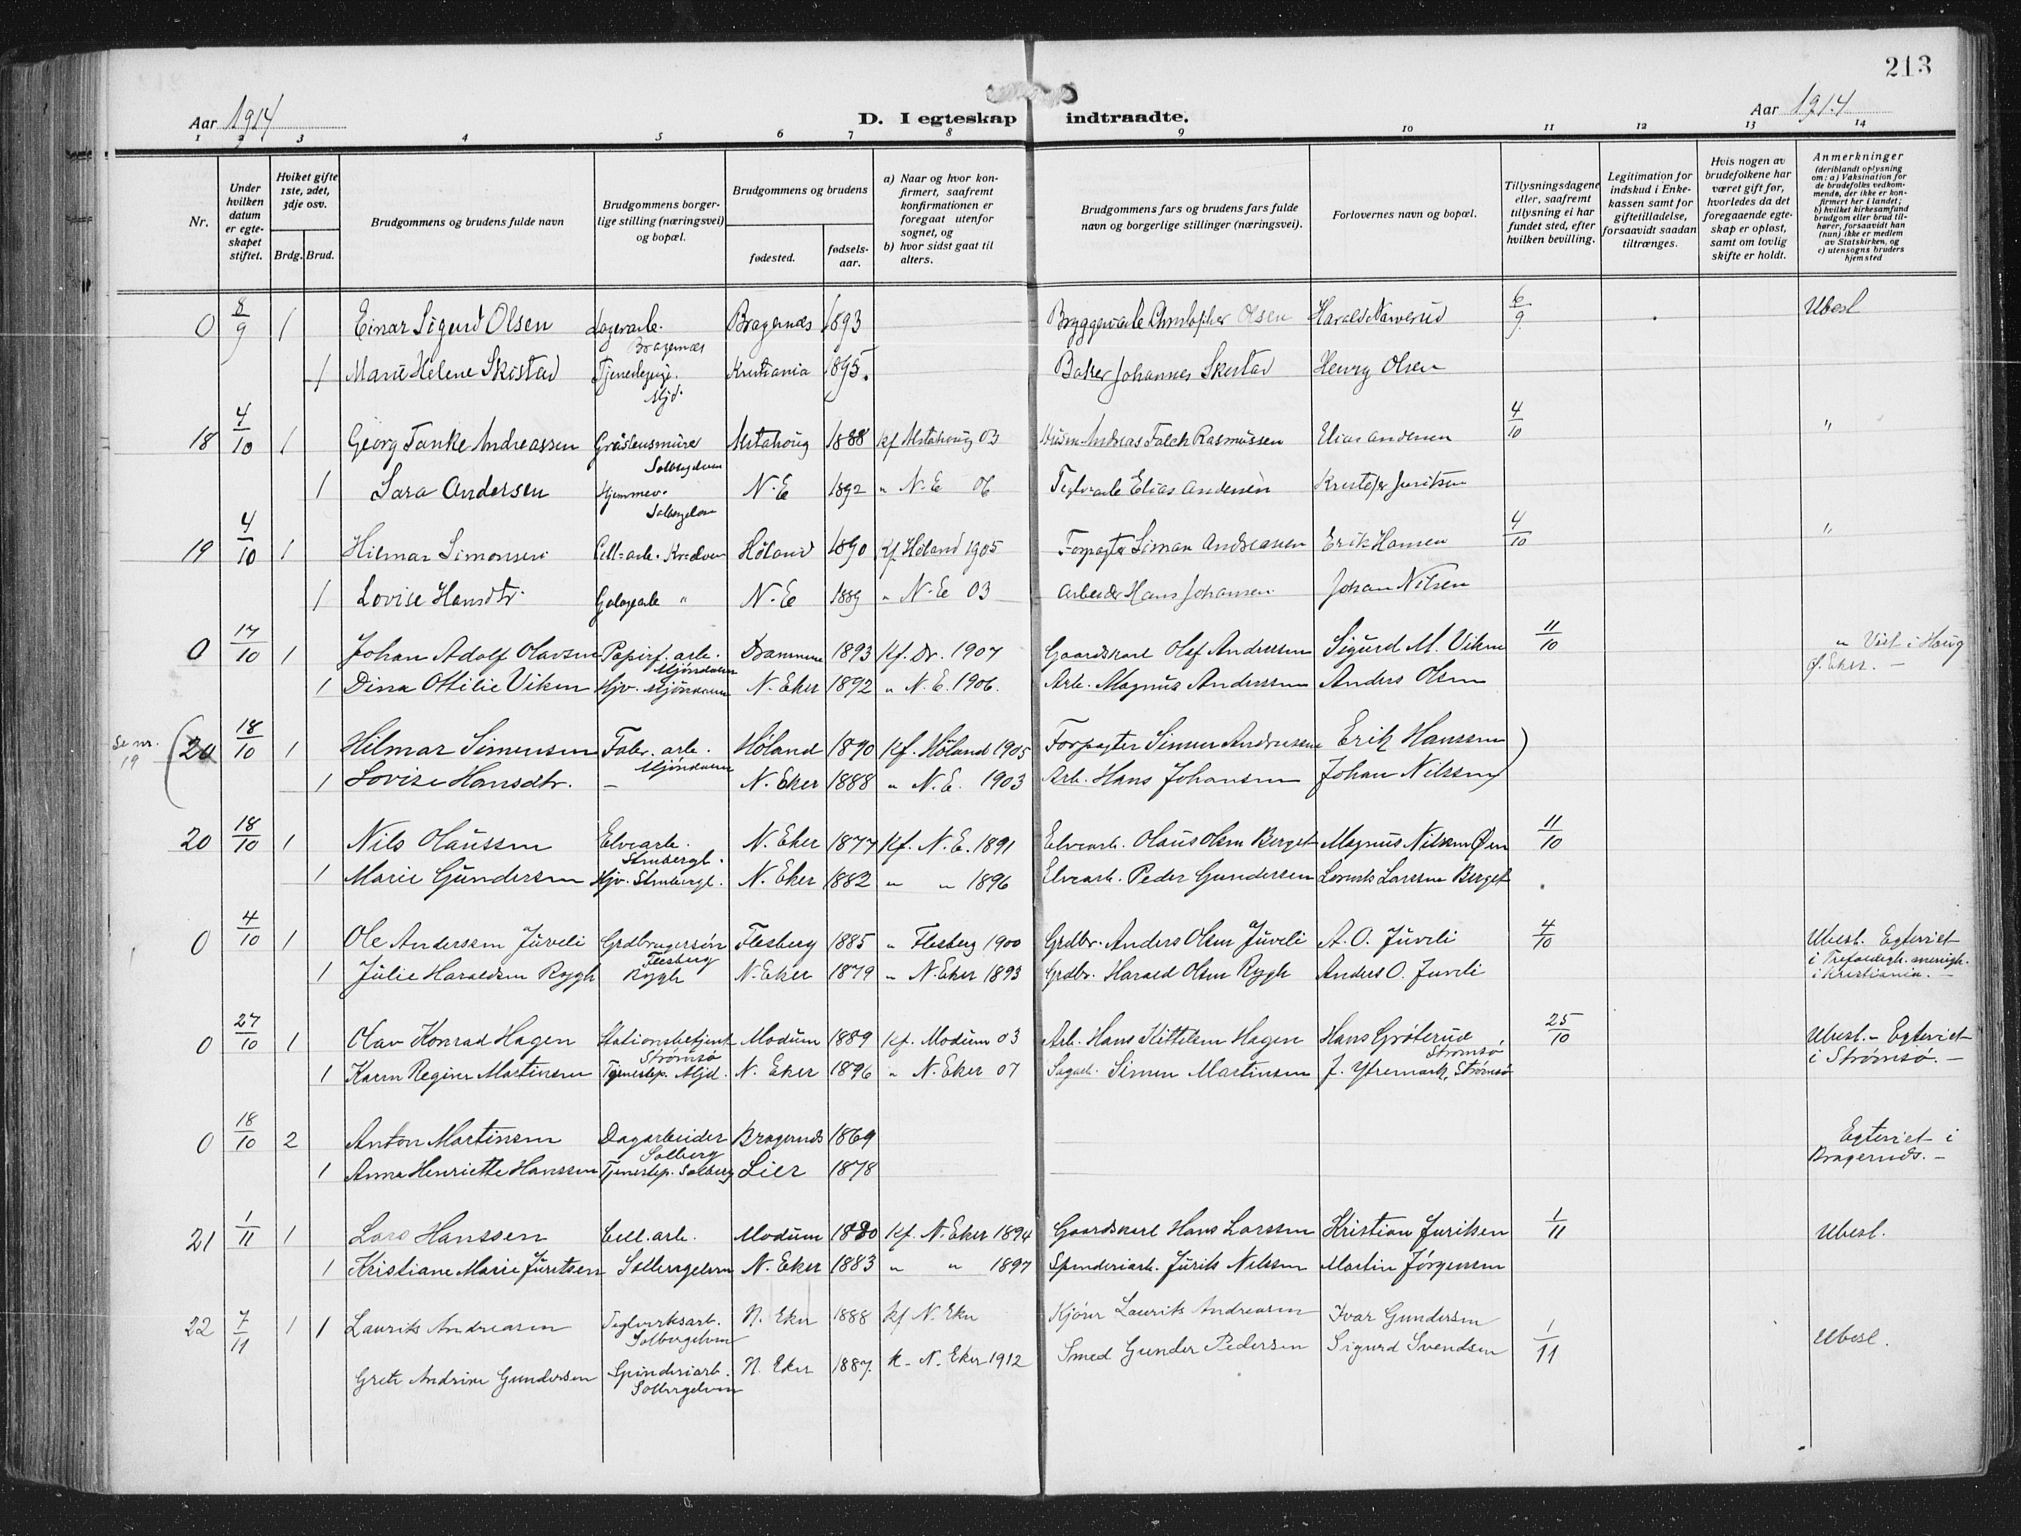 213
Aar 1914 D. I egteskap indtraadte. Aar 1914
1 2 3 4 5 6 7 8 9 10 11 12 13 14
Nr.
Under hvilken datum er egteskapet stiftet.
Hviket gifte 1ste, 2det, 3dje osv.
Brdg. Brud.
Brudgommens og brudens fulde navn
Brudgommens borgerlige stilling (næringsvei) og bopæl.
Brudgommens og brudens
fødested. fødselsaar.
a) Naar og hvor konfirmert, saafremt konfirmationen er foregaat utenfor sognet, og
b) hvor sidst gaat til alters.
Brudgommens fars og brudens fars fulde navn og borgerlige stillinger (næringsvei).
Forlovernes navn og bopæl.
Tillysningsdagene eller, saafremt tillysning ei har fundet sted, efter hvilken bevilling.
Legitimation for indskud i Enkekassen samt for giftetilladelse, forsaavidt saadan tiltrænges.
Hvis nogen av brudefolkene har været gift før, hvorledes da det foregaaende egteskap er opløst, samt om lovlig skifte er holdt.
Anmerkninger (deriblandt oplysning om: a) Vaksination for de brudefolks vedkommende, der ikke er konfirmert her i landet; b) hvilket kirkesamfund brudgom eller brud tilhører, forsaavidt han (hun) ikke er medlem av Statskirken, og c) utensogns bruders hjemsted
0 8/9 1 Einar Sigurd Olsen Lagerarb. Bragernæs Bragernæs 1893 Bryggeriarb Christopher Olsen Harald Narverud 6/9 Ubesl
1 Marie Helene Skistad Tjenestepige. Mjd. Kristiania 1895. Baker Johannes Skistad Henry Olsen
18 4/10 1 Georg Tanke Andreassen Solbergelven Alstahoug 1888 kf Alstahoug 03 Andreas Falch Rasmussen Elias Andersen 4/10 "
1 Sara Andersen Hjemmev. Solbergelven N.E 1892 " N.E 06 Teglvarb Elias Andersen Kristofer Juritsen
19 4/10 1 Hilmar Simonsen Cell-arb. Høland 1890 Kf Høland 1905 Forpagter Simon Andreasen Erik Hansen 4/10 "
1 Lovise Hansdtr. " N.E 1889 " N.E 03 Arbeider Hans Johansen Johan Nilsen
0 17/10 1 Johan Adolf Olavsen Papirf. arb. Mjøndalen Drammen 1893 Kf. Dr. 1907 Gaardskarl Olef Andersen Sigurd M. Viken 11/10 " Viet i Haug Ø. Eker. -
1 Dina Ottilie Viken Hjv. Mjøndalen N. Eker 1892 " N.E. 1906. Arb. Magnus Anderssen Anders Olsen
Se nr. 19 (20 18/10 1 Hilmar Simensen Fabr. arb. Mjøndalen Høland 1890 kf. Høland 1905 Forpagter Simen Andreassen Erik Hanssen )
1 Lovise Hansdtr. - N. Eker 1888 " N.E. 1903 Arb. Hans Johansen Johan Nilssen
20 18/10 1 Nils Olaussen Elvearb. Stenbergl. N. Eker 1877 Kf. N.E. 1891 Elvearb. Olaus Olsen Berget Magnus Nilsen Øen 11/10
1 Marie Gundersen Hjv. Stenbergl. N. Eker 1882 " " 1896 Elvearb. Peder Gundersen Lorents Larssen Berget
0 4/10 1 Ole Anderssen Juveli Grdbrugersøn Flesberg Flesberg 1885 " Flesberg 1900 Grdbr. Anders Olsen Juveli A. O. Juveli 4/10 Ubesl. Egteviet i Trefoldigh. menigh. i Kristiania. -
1 Julie Haraldsen Rygh Rygh N. Eker 1879 " N. Eker 1893 Grdbr. Harald Olsen Rygh Anders O. Juveli
0 27/10 1 Olav Konrad Hagen Stationsbetjent Strømsø Modum 1889 kf. Modum 03 Arb. Hans Kittelsen Hagen Hans Grøterud Strømsø 25/10 Ubesl. - Egteviet i Strømsø. -
1 Karen Regine Martinsen Tjenestep. Mjd. N. Eker 1896 " N. Eker 07 Sagarb. Simen Martinsen J. Ytremark, Strømsø
0 18/10 2 Anton Martinsen Dagarbeider Solberg Bragernes 1869 Egteviet i Bragernes. -
1 Anna Henriette Hanssen Tjenestep. Solberg Lier 1878
21 1/11 1 Lars Hanssen Cell. arb. Modum 1880 kf. N. Eker 1894 Gaardskarl Hans Larssen Kristian Juritsen 1/11 Ubesl.
1 Kristiane Marie Juritsen Solbergelven N. Eker 1883 " " 1897 Spinderiarb. Jurits Nilssen Martin Jørgensen
22 7/11 1 1 Laurits Andreasen Teglverksarb. Solbergelven N. Eker 1888 kf N. Eker Kjører Laurits Andreasen Ivar Gundersen 1/11 Ubesl.
Grete Andrine Gundersen Spinderiarb. Solbergelven N. Eker 1887. K. N. Eker 1912 Smed Gunder Pedersen Sigurd Svendsen